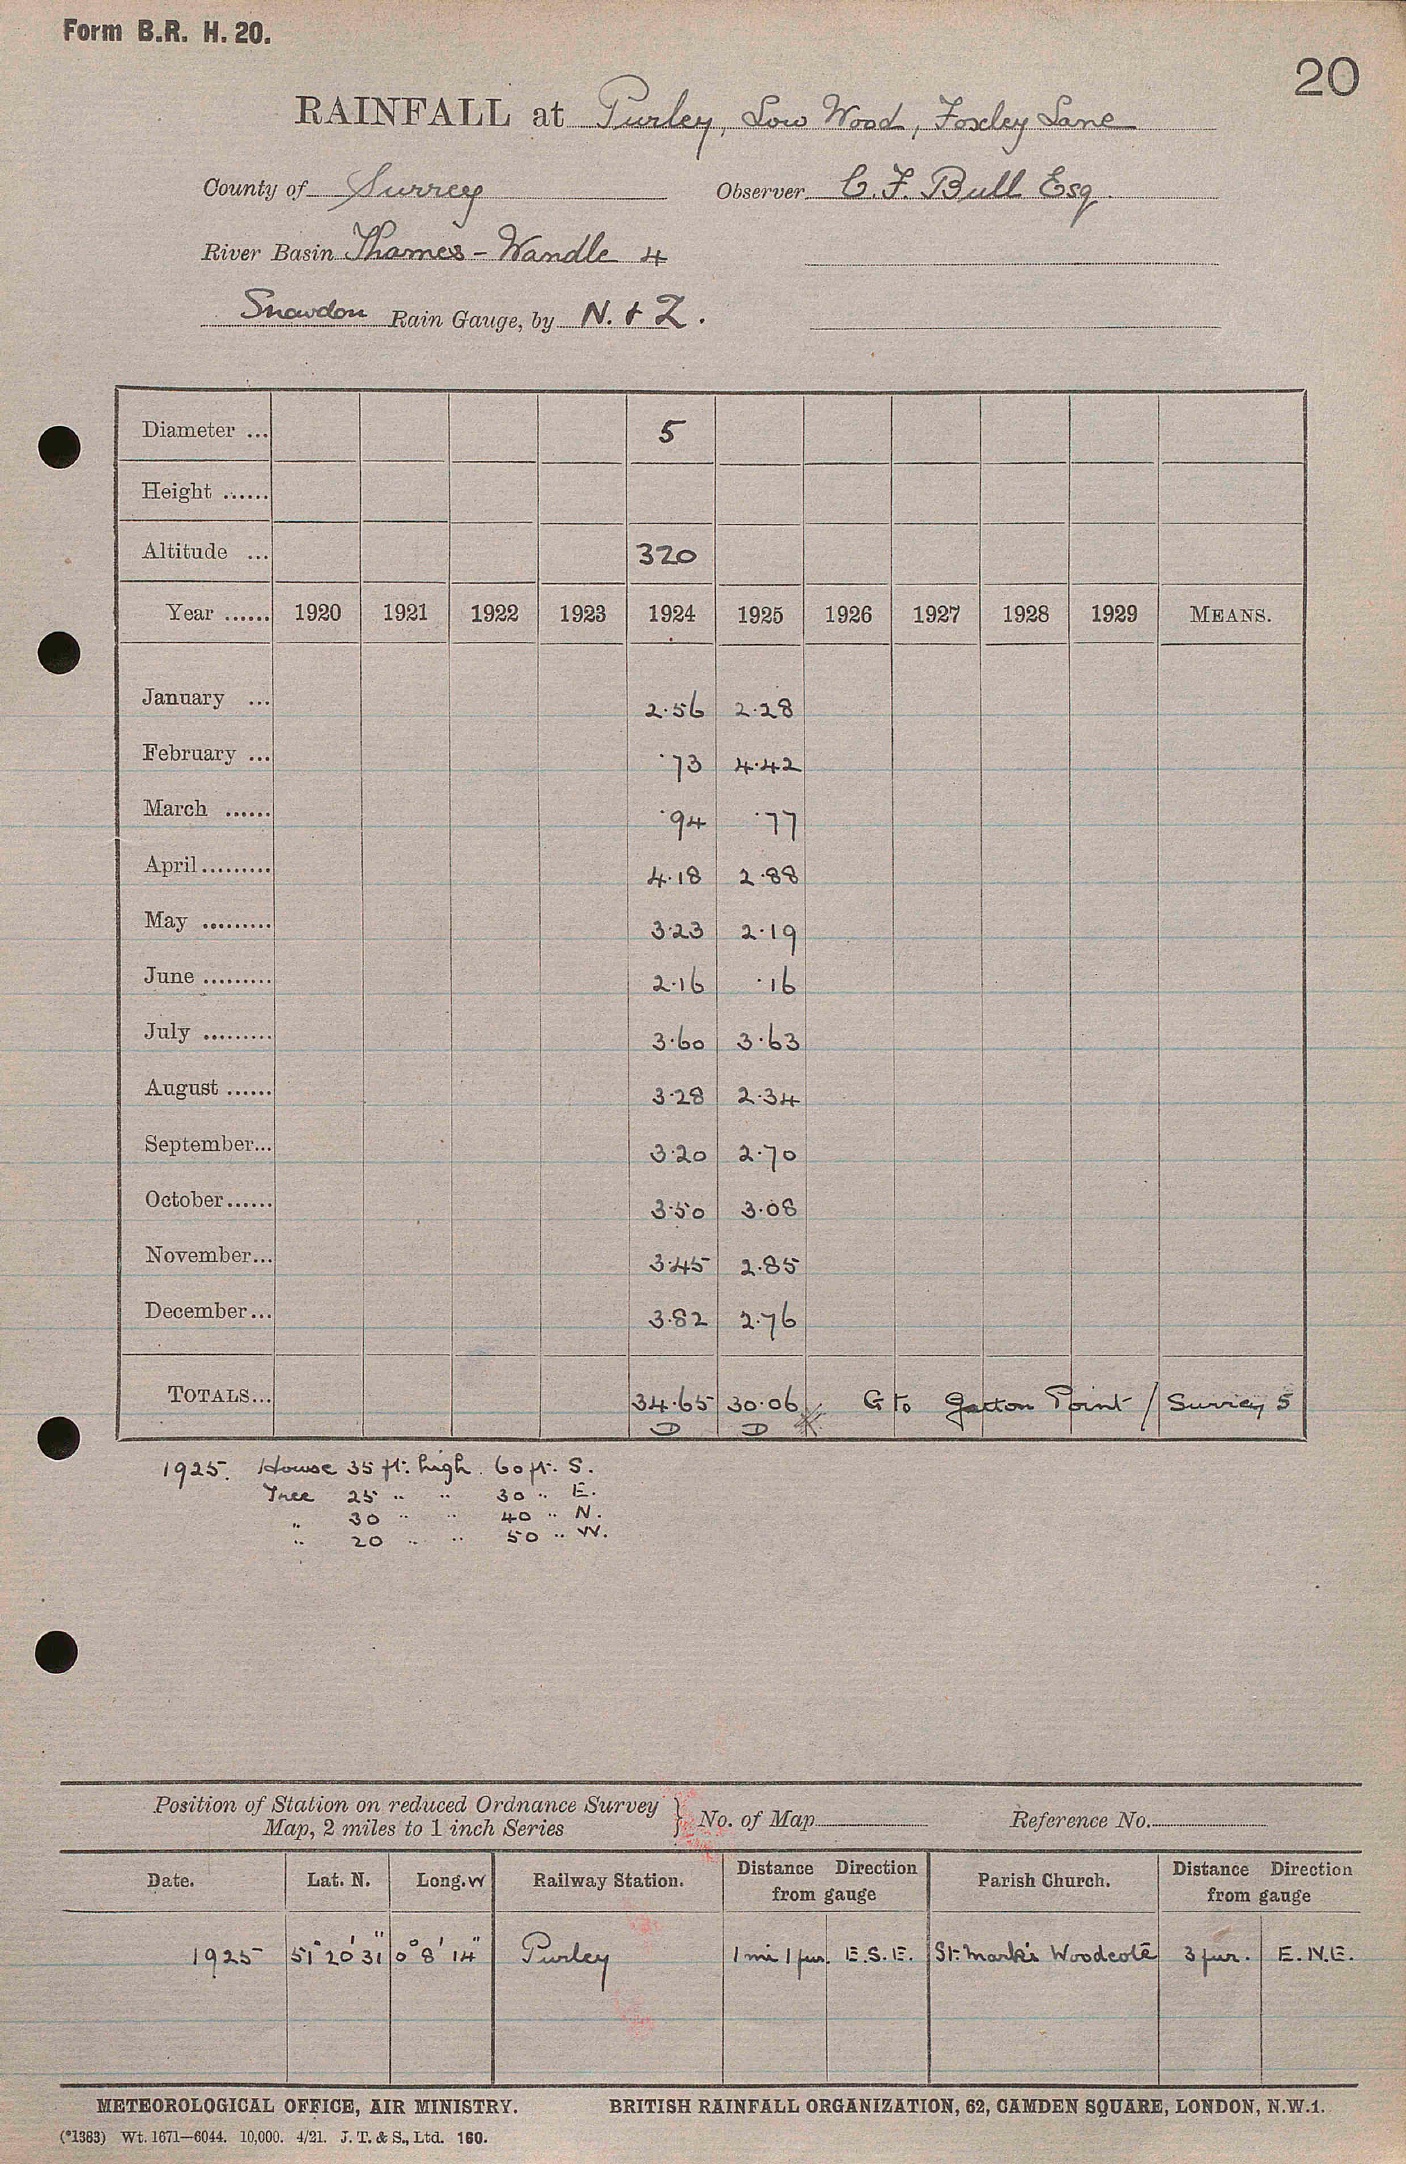 Form B.R. H. 20.
20
RAINFALL at Purley, Low Wood, Foxley Lane
County of Surrey Observer C. F. Bull Esq.
River Basin Thames - Wandle 4
Snowdon Rain Gauge, by N. & Z.
Diameter ... 5
Height ......
Altitude ... 320
Year ...... 1920 1921 1922 1923 1924 1925 1926 1927 1928 1929 MEANS.
January ... 2.56 2.28
February ... .73 4.42
March ...... .94 .77
April ......... 4.18 2.88
May ......... 3.23 2.19
June ......... 2.16 .16
July ......... 3.60 3.63
August ...... 3.28 2.34
September... 3.20 2.70
October ...... 3.50 3.08
November... 3.45 2.85
December... 3.82 2.76
TOTALS... 34.65 30.06 G to Gatton Point / Surrey 5
D D
1925. House 35 ft. high. 60 ft. S.
Tree 25 " " 30 " E.
" 30 " " 40 " N.
" 20 " " 50 " W.
Position of Station on reduced Ordnance Survey
Map, 2 miles to 1 inch Series } No. of Map Reference No.
Date. Lat. N. Long. W Railway Station. Distance Direction from gauge Parish Church. Distance Direction from gauge
1925 51° 20' 31" 0° 8' 14" Purley 1 mi 1 fur. E.S.E. St. Mark's Woodcote 3 fur. E.N.E.
METEOROLOGICAL OFFICE, AIR MINISTRY. BRITISH RAINFALL ORGANIZATION, 62, CAMDEN SQUARE, LONDON, N.W.1.
(*1383) Wt. 1671—6044. 10,000. 4/21. J. T. & S., Ltd. 160.